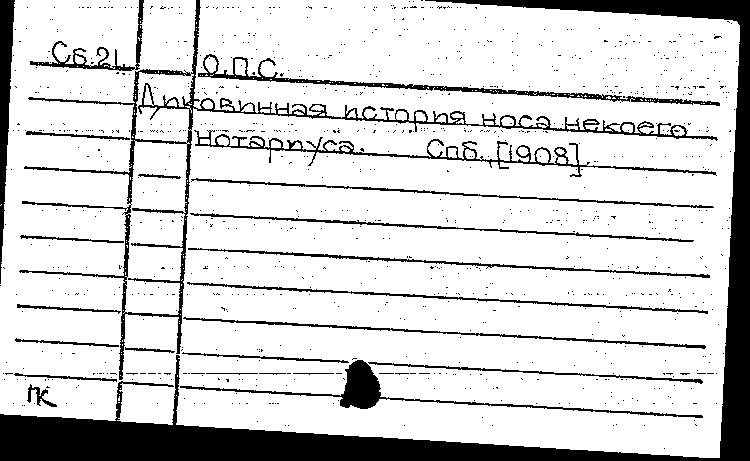 Сб.21 О.П.С.
Диковинная история носа некоего
нотариуса. Спб., [1908].
ПК